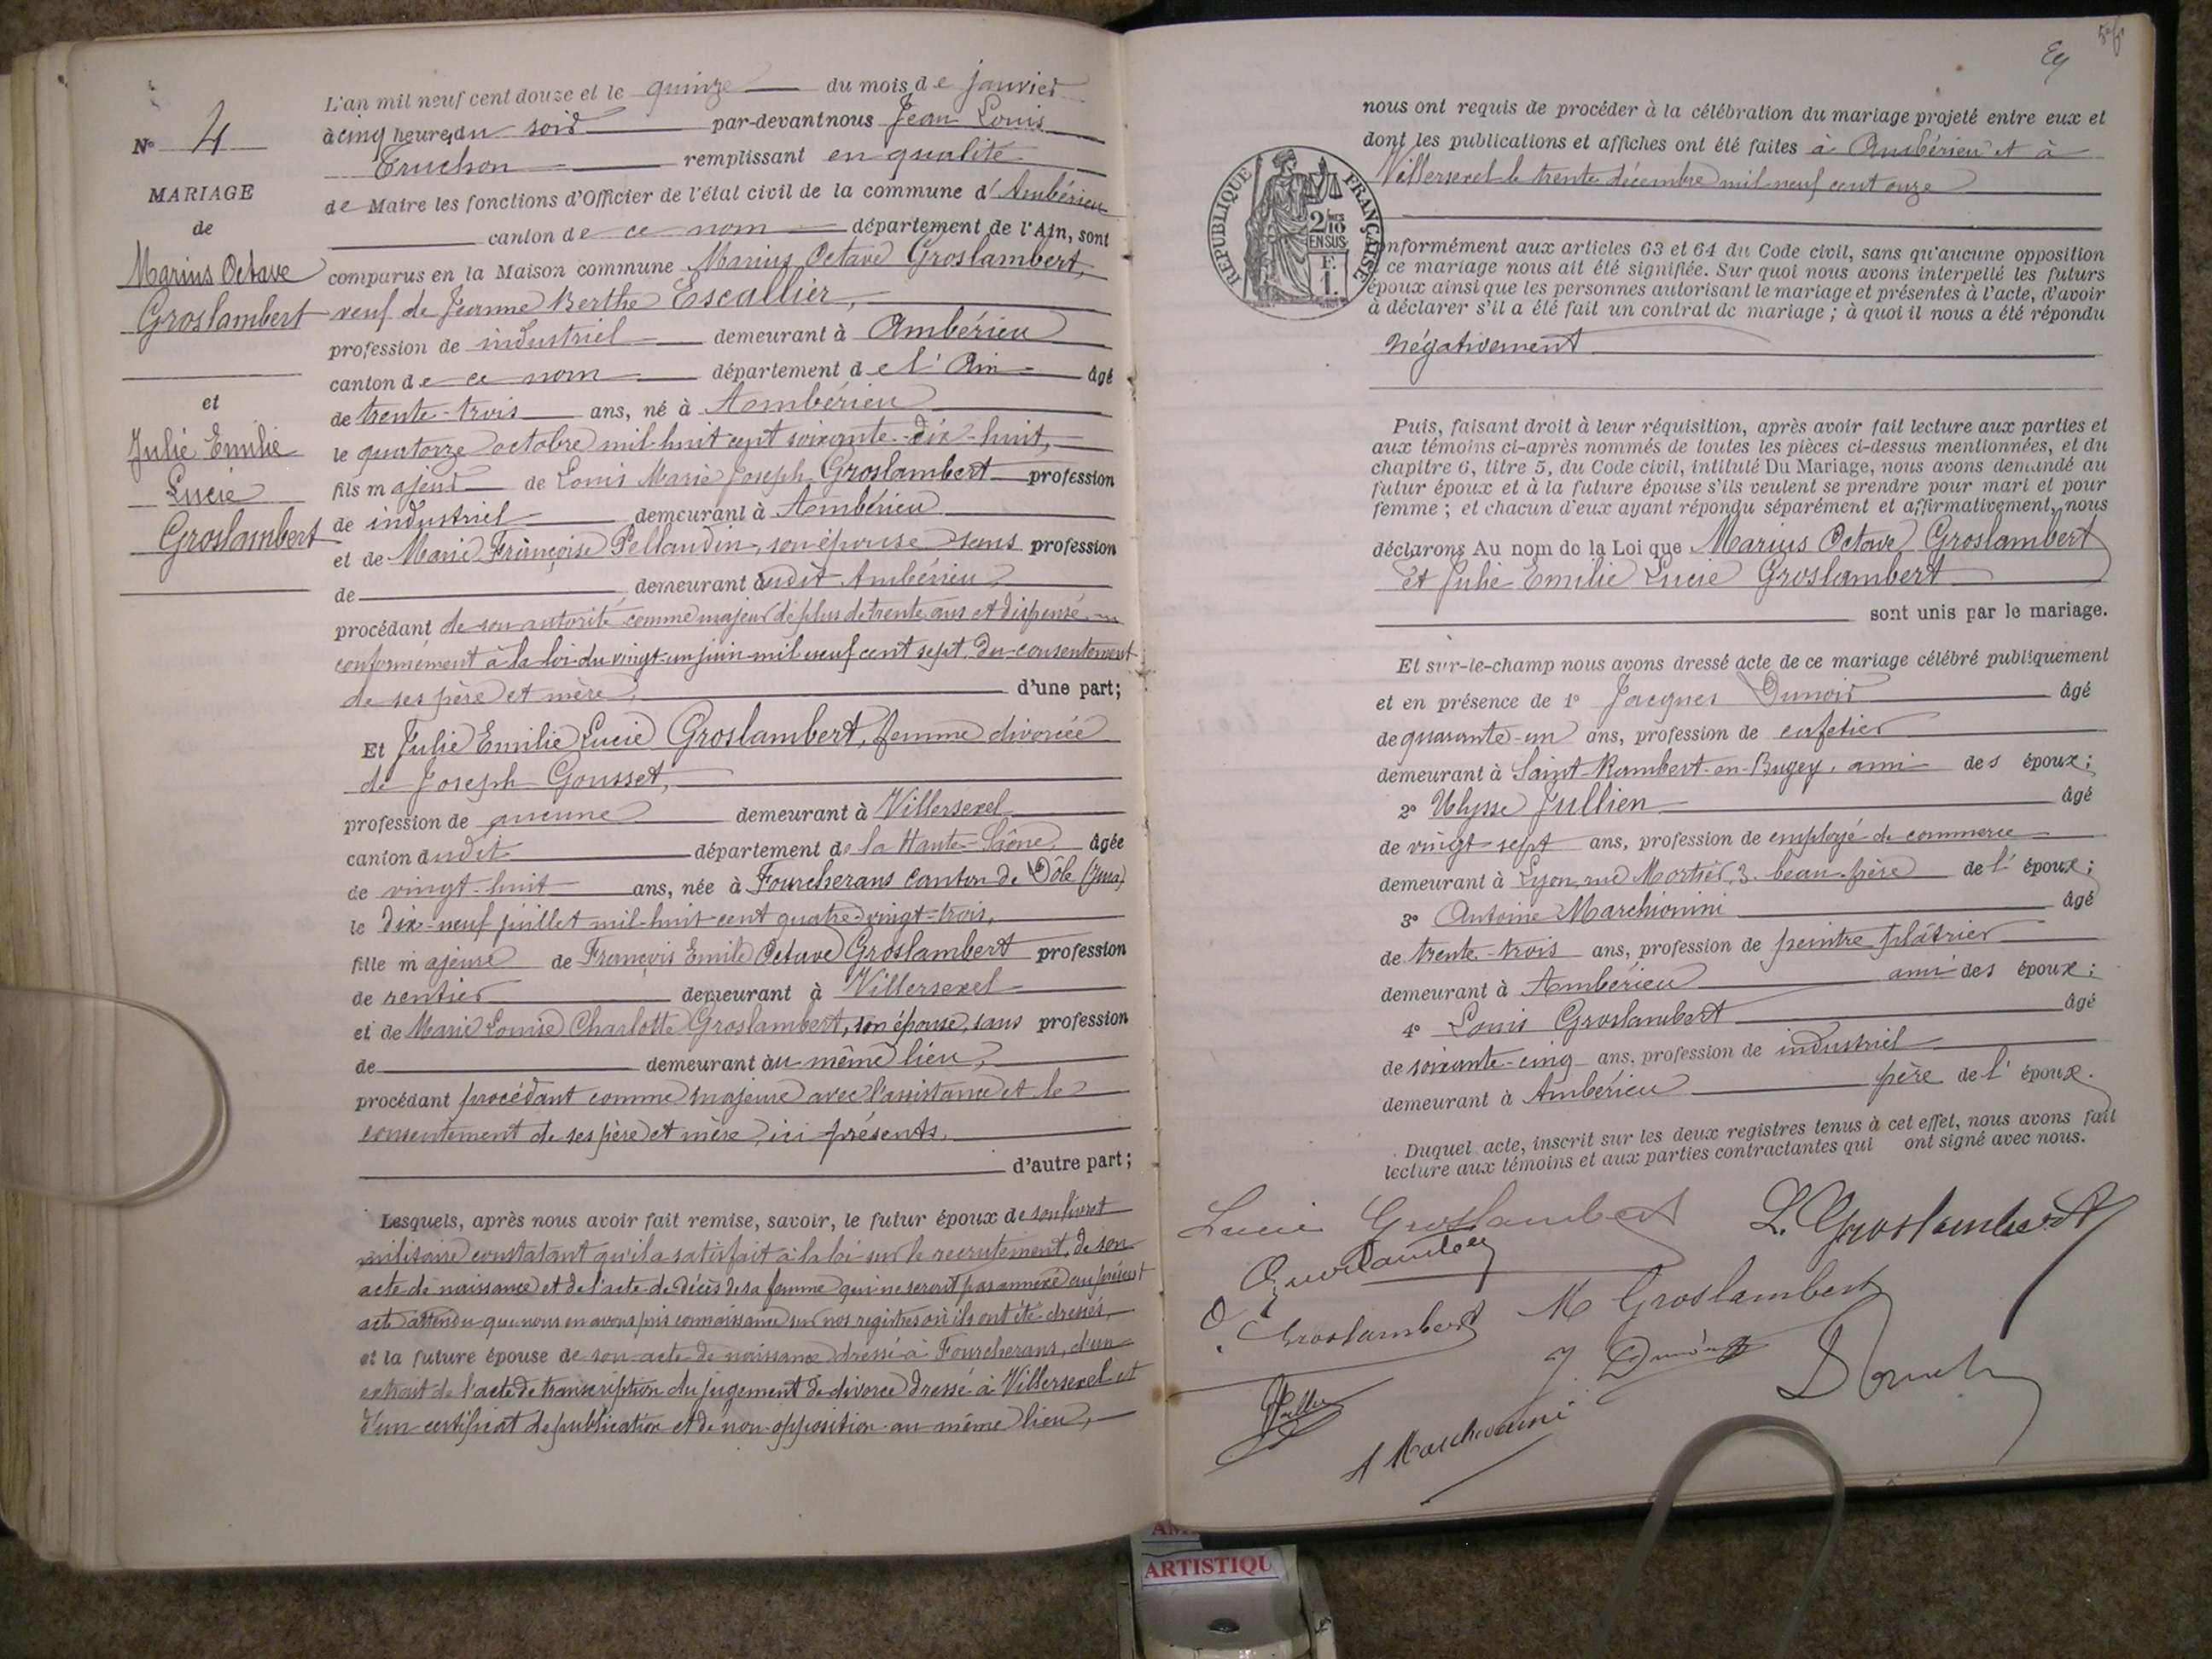 N° 4
MARIAGE
de
Marius Octave
Groslambert
et
Julie Emilie
Lucie
Groslambert
L'an mil neuf cent douze et le quinze du mois de janvier
à cinq heures du soir par-devant nous Jean Louis
Truchon remplissant en qualité
de Maire les fonctions d'Officier de l'état civil de la commune d'Ambérieu
canton de ce nom département de l'Ain, sont
comparus en la Maison commune Marius Octave Groslambert,
veuf de Jeanne Berthe Escallier,
profession de industriel demeurant à Ambérieu
canton de ce nom département de l'Ain âgé
de trente-trois ans, né à Ambérieu
le quatorze octobre mil-huit cent soixante-dix-huit,
fils majeur de Louis Marie Joseph Groslambert profession
de industriel demeurant à Ambérieu
et de Marie Françoise Pellaudin, son épouse sans profession
de demeurant audit Ambérieu
procédant de son autorité comme majeur de plus de trente ans et dispensé
conformément à la loi du vingt-un juin mil neuf cent sept du consentement
de ses père et mère, d'une part;
Et Julie Emilie Lucie Groslambert, femme divorcée
de Joseph Gousset,
profession de aucune demeurant à Villersexel
canton dudit département de la Haute-Saône âgée
de vingt-huit ans, née à Fourcherans canton de Dôle (Jura)
le dix-neuf juillet mil-huit-cent quatre-vingt-trois,
fille majeure de François Emile Octave Groslambert profession
de rentier demeurant à Villersexel
et de Marie Louise Charlotte Groslambert, son épouse, sans profession
de demeurant au même lieu,
procédant procédant comme majeure avec l'assistance et le
consentement de ses père et mère, ici présents.
d'autre part;
Lesquels, après nous avoir fait remise, savoir, le futur époux de son livret
militaire constatant qu'il a satisfait à la loi sur le recrutement, de son
acte de naissance et de l'acte de décès de sa femme qui ne seront pas annexé au présent
acte attendu que nous en avons pris connaissance sur nos registres où ils ont été dressés,
et la future épouse de son acte de naissance dressé à Fourcherans, d'un
extrait de l'acte de transcription du jugement de divorce dressé à Villersexel et
d'un certificat de publication et de non-opposition au même lieu,
nous ont requis de procéder à la célébration du mariage projeté entre eux et
dont les publications et affiches ont été faites à Ambérieu et à
Villersexel le trente décembre mil neuf cent onze
RÉPUBLIQUE FRANÇAISE
2/10
EN SUS
F.
1.
onformément aux articles 63 et 64 du Code civil, sans qu'aucune opposition
ce mariage nous ait été signifiée. Sur quoi nous avons interpellé les futurs
époux ainsi que les personnes autorisant le mariage et présentes à l'acte, d'avoir
à déclarer s'il a été fait un contrat de mariage; à quoi il nous a été répondu
négativement
Puis, faisant droit à leur réquisition, après avoir fait lecture aux parties et
aux témoins ci-après nommés de toutes les pièces ci-dessus mentionnées, et du
chapitre 6, titre 5, du Code civil, intitulé Du Mariage, nous avons demandé au
futur époux et à la future épouse s'ils veulent se prendre pour mari et pour
femme; et chacun d'eux ayant répondu séparément et affirmativement, nous
déclarons Au nom de la Loi que Marius Octave Groslambert
et Julie Emilie Lucie Groslambert
sont unis par le mariage.
Et sur-le-champ nous avons dressé acte de ce mariage célébré publiquement
et en présence de 1° Jacques Dunoir âgé
de quarante-un ans, profession de cafetier
demeurant à Saint-Rambert-en-Bugey, ami des époux;
2° Ulysse Jullien âgé
de vingt-sept ans, profession de employé de commerce
demeurant à Lyon, rue Mortier, 3. beau-frère de l'époux;
3° Antoine Marchionini âgé
de trente-trois ans, profession de peintre plâtrier
demeurant à Ambérieu ami des époux;
4° Louis Groslambert âgé
de soixante-cinq ans, profession de industriel
demeurant à Ambérieu père de l'époux.
Duquel acte, inscrit sur les deux registres tenus à cet effet, nous avons fait
lecture aux témoins et aux parties contractantes qui ont signé avec nous.
Lucie Groslambert L. Groslambert
O. Groslambert M Groslambert
A Marchionini
ARTISTIQU